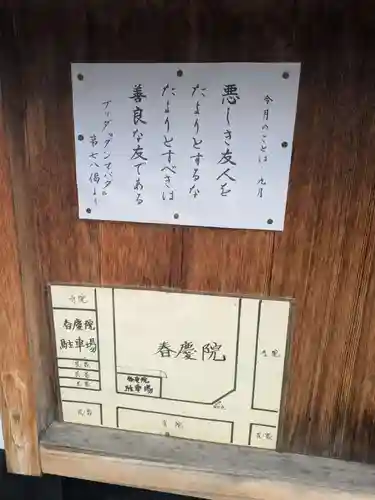 今月のことば 九月
悪しき友人を
たよりとするな
たよりとすべきは
善良な友である
ブッダ ダンマパダ
第七八偈より
寺院
春慶院
駐車場
民家
民家
民家
民家
春慶院
春慶院
駐車場
寺院
民家
寺院
民家